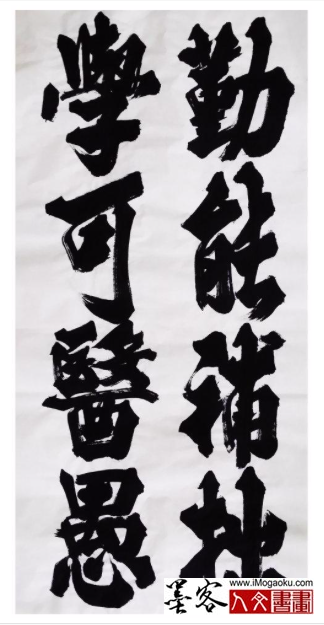 勤能補拙
學可醫愚
墨客
www.iMogaoku.com
人文書畫